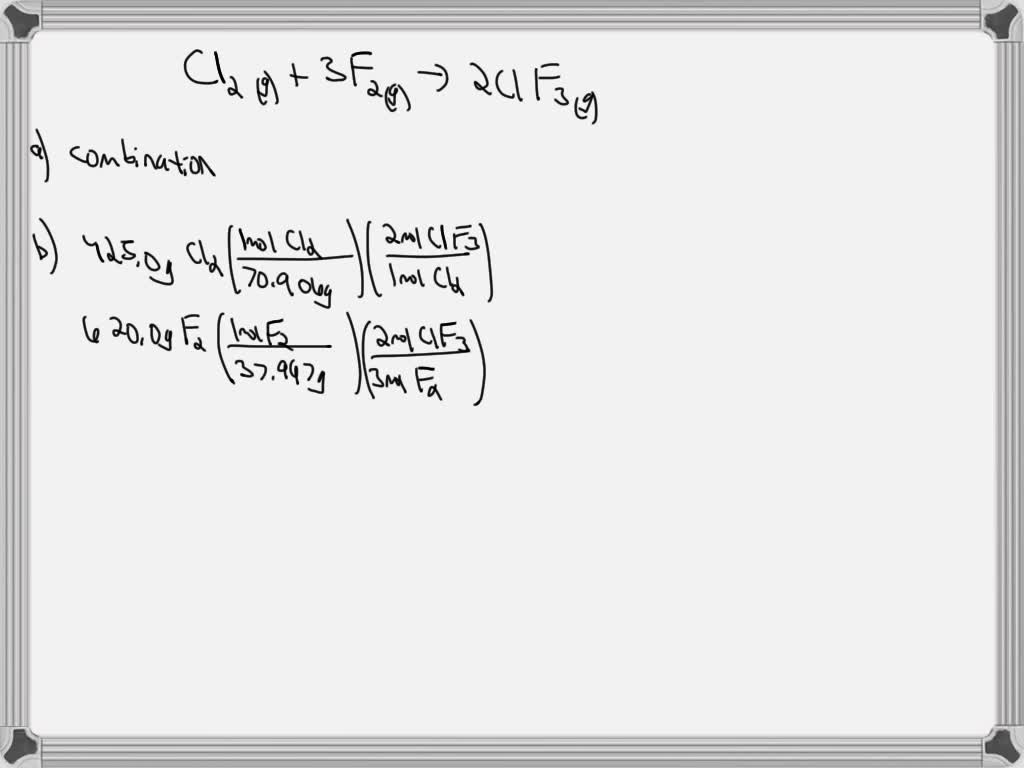 Cl₂(g) + 3F₂(g) → 2ClF₃(g)
a) combination
b) 425.0g Cl₂ (1mol Cl₂ / 70.906g) (2mol ClF₃ / 1mol Cl₂)
620.0g F₂ (1mol F₂ / 37.997g) (2mol ClF₃ / 3mol F₂)